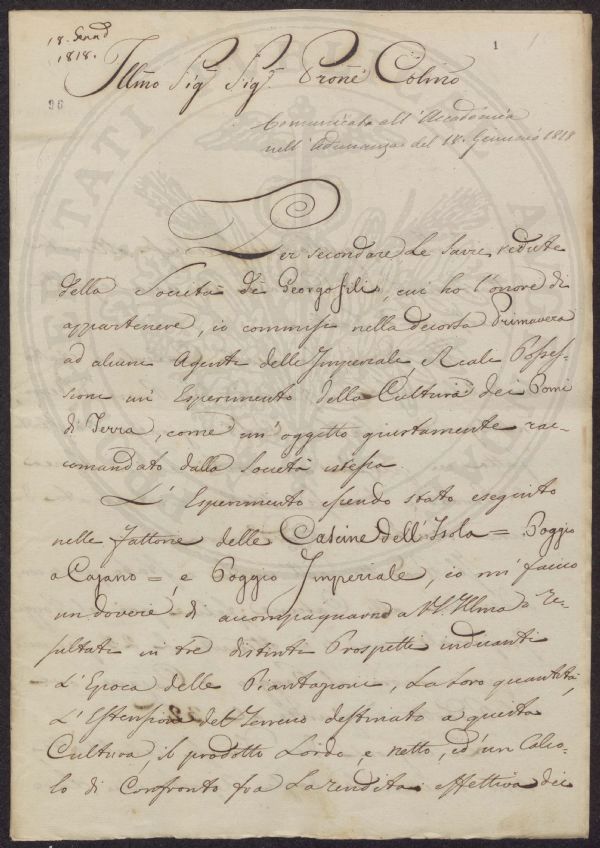 18. Gennº
1818.
1
1
Illmo Sigr Sigr Prone Colmo
96
Comunicata all'Accademia
nell'Adunanza del 18. Gennaio 1818
Per secondare le savie vedute
della Società dei Georgofili, cui ho l'onore di
appartenere, io commisi nella decorsa Primavera
ad alcuni Agenti delle Imperiale, e Reale Posses-
sione un' Esperimento della Cultura dei Pomi
di Terra, come un'oggetto giustamente rac-
comandato dalla Società istessa.
L' Esperimento essendo stato eseguito
nelle Fattorie delle Cascine dell'Isola = Poggio
a Cajano =, e Poggio Imperiale, io mi faccio
un dovere di accompagnarne a VS. Illma i re-
sultati in tre distinti Prospetti indicanti
L'Epoca delle Piantagioni, La Loro quantità,
L'Estensione del Terreno destinato a questa
Cultura, il prodotto Lordo, e netto, ed' un Calco-
lo di Confronto fra La rendita effettiva dei